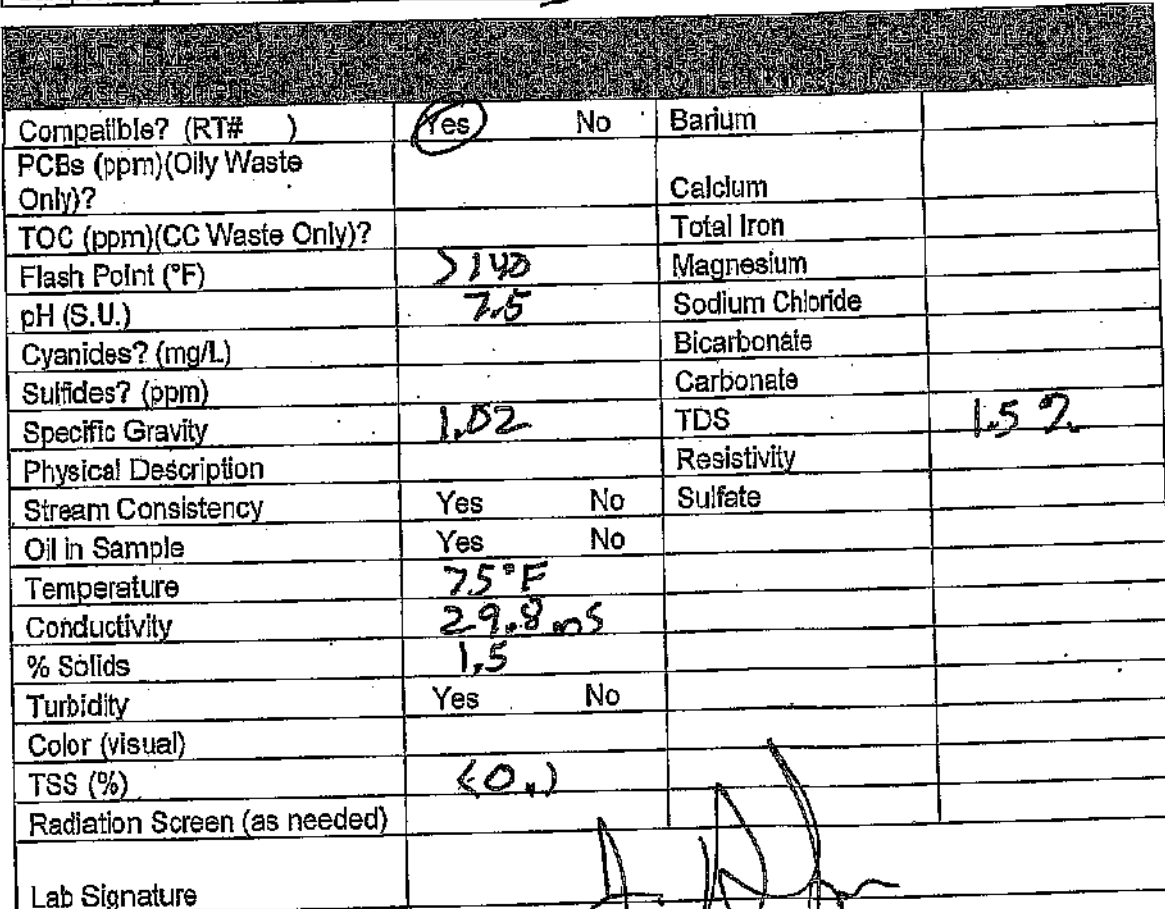 Compatible? (RT# ) Yes No Barium
PCBs (ppm)(Oily Waste
Only)? Calcium
TOC (ppm)(CC Waste Only)? Total Iron
Flash Point (°F) >140 Magnesium
pH (S.U.) 7.5 Sodium Chloride
Cyanides? (mg/L) Bicarbonate
Sulfides? (ppm) Carbonate
Specific Gravity 1.02 TDS 1.5 %
Physical Description Resistivity
Stream Consistency Yes No Sulfate
Oil in Sample Yes No
Temperature 75°F
Conductivity 29.8 mS
% Solids 1.5
Turbidity Yes No
Color (visual)
TSS (%) <0.1
Radiation Screen (as needed)
Lab Signature